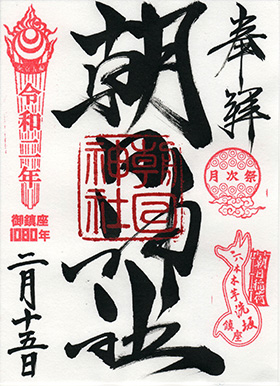 奉拝
月次祭
朝日稲荷
六本木芋洗坂
鎮座
朝日神社
朝日
神社
令和二年
御鎮座
1080年
二月十五日